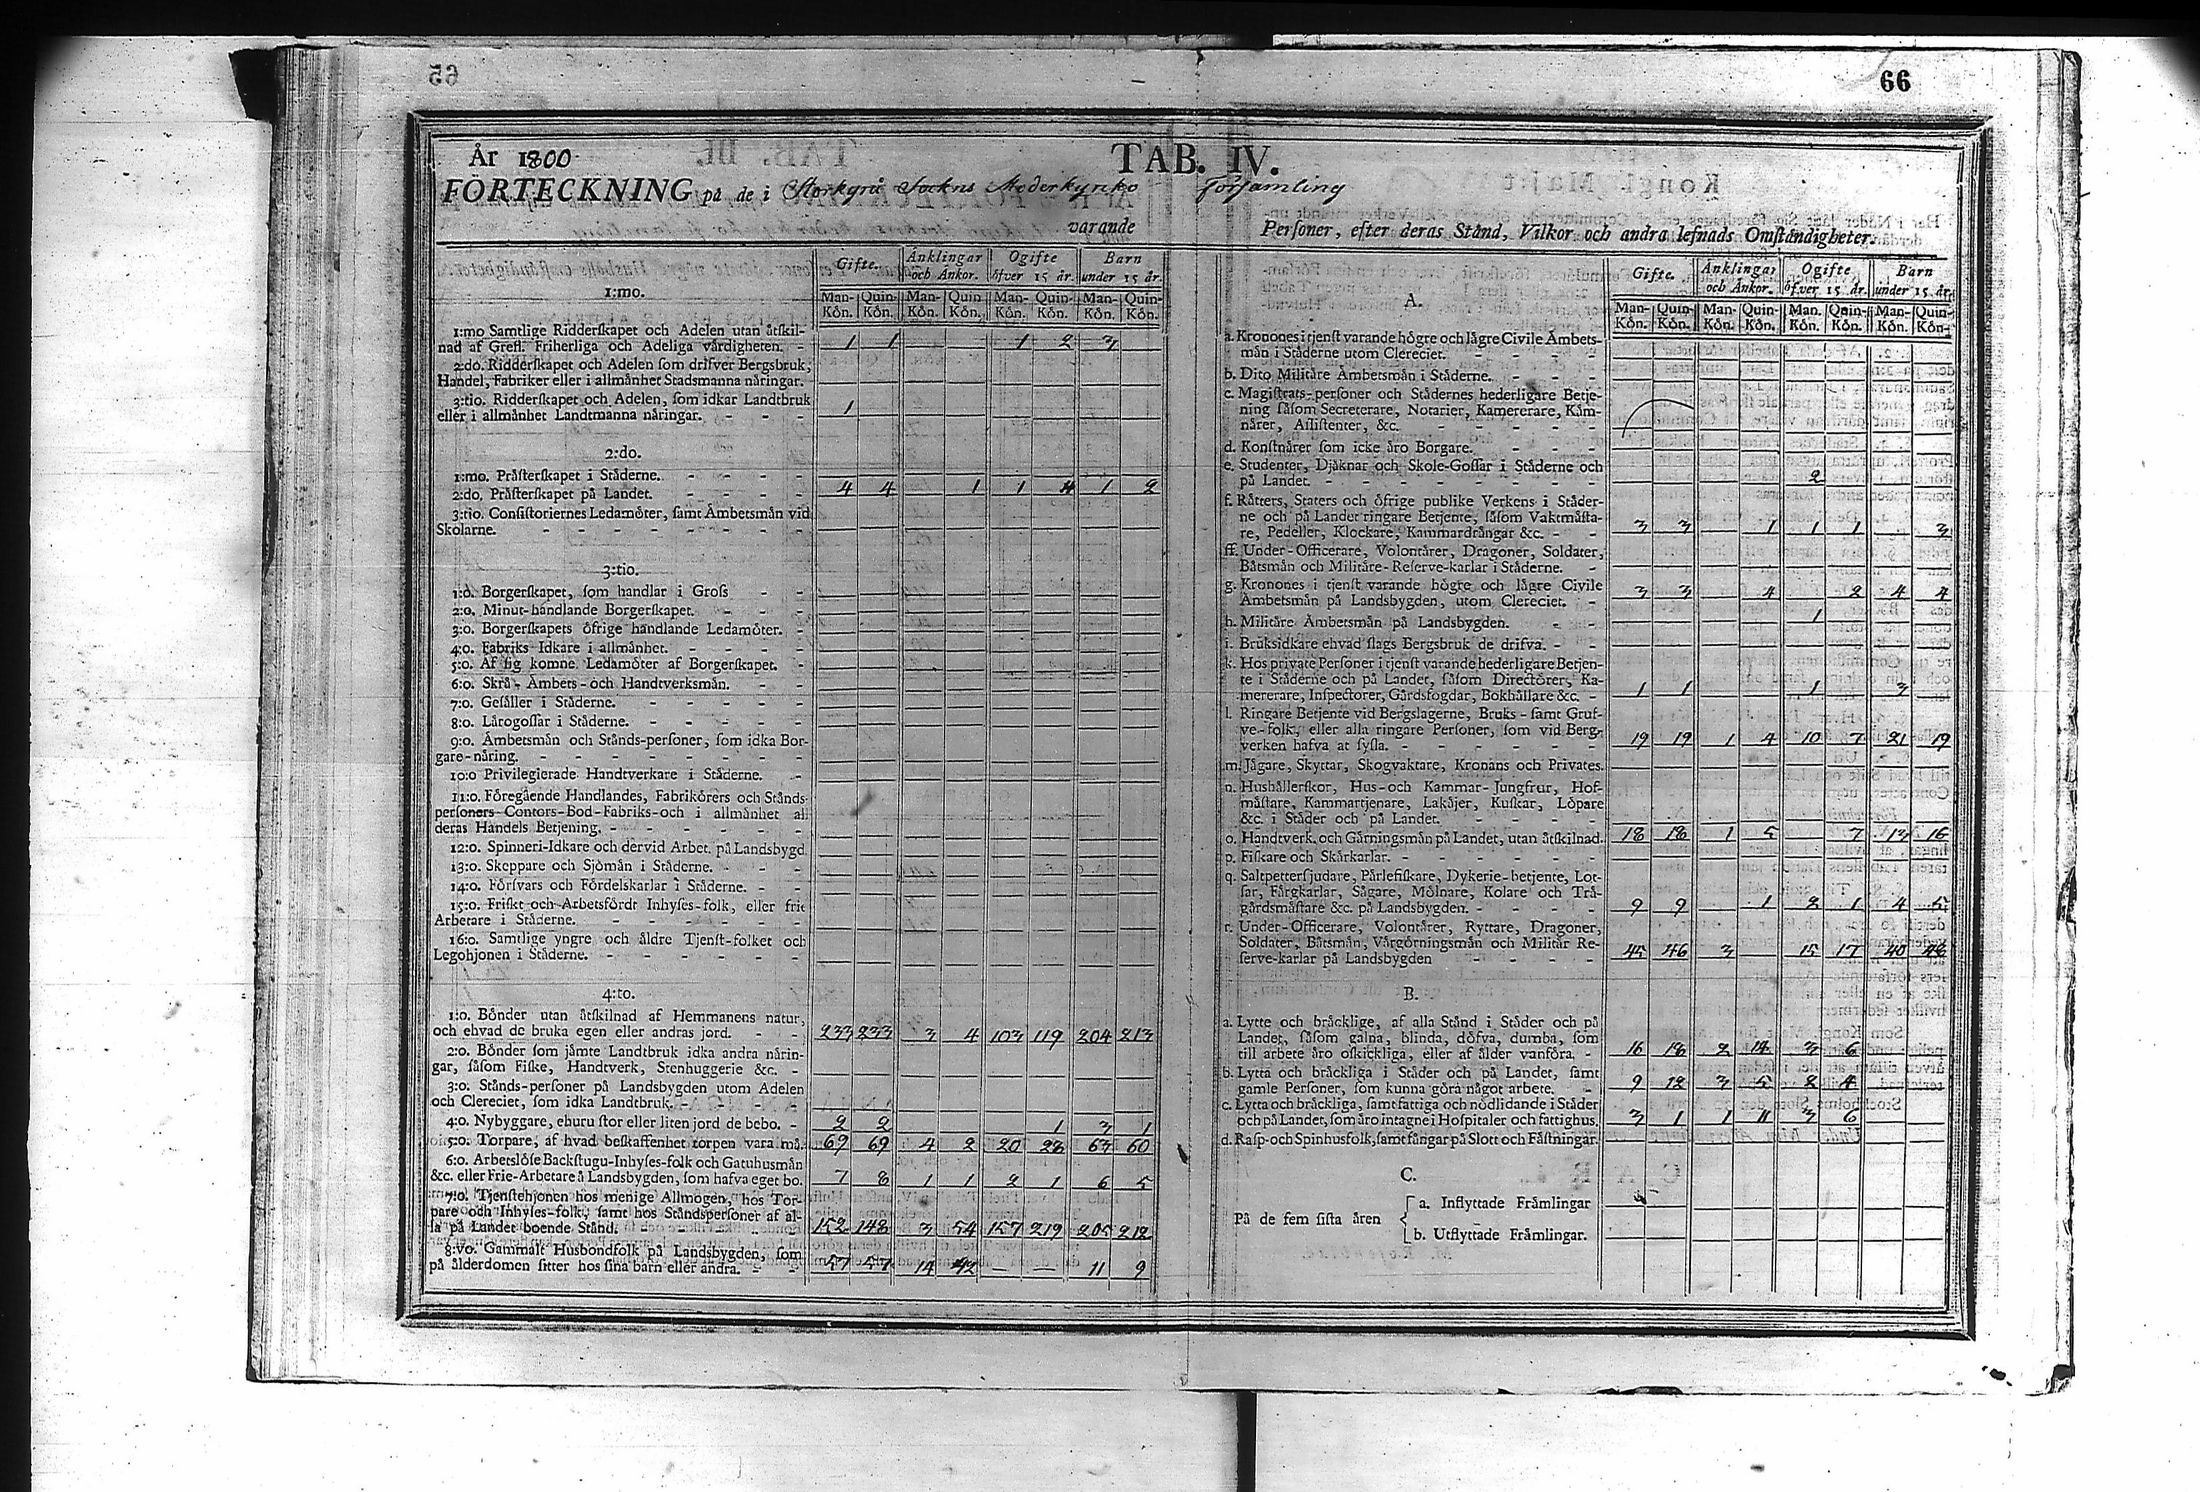 65
66
År 1800
TAB. IV.
FÖRTECKNING på de i Storkyrå Sockns Moderkyrko Församling
varande Personer, efter deras Stånd, Vilkor och andra lefnads Omständigheter.
Gifte. Änklingar och Änkor. Ogifte öfver 15 år. Barn under 15 år.
Man-Kön. Quin-Kön. Man-Kön. Quin-Kön. Man-Kön. Quin-Kön. Man-Kön. Quin-Kön.
1:mo.
1:mo Samtlige Ridderskapet och Adelen utan åtskil-
nad af Grefl. Friherliga och Adeliga värdigheten. - 1 1 1 2 3
2:do. Ridderskapet och Adelen som drifver Bergsbruk,
Handel, Fabriker eller i allmånhet Stadsmanna näringar.
3:tio. Ridderskapet och Adelen, som idkar Landtbruk
eller i allmånhet Landtmanna näringar. - - - 1
2:do.
1:mo. Prästerskapet i Städerne. - - - -
2:do. Prästerskapet på Landet. - - - - 4 4 1 1 4 1 2
3:tio. Consistoriernes Ledamöter, samt Ämbetsmän vid
Skolarne. - - - - - - - -
3:tio.
1:o. Borgerskapet, som handlar i Gross - -
2:o. Minut-handlande Borgerskapet. - - -
3:o. Borgerskapets öfrige handlande Ledamöter. -
4:o. Fabriks-Idkare i allmänhet. - - - -
5:o. Af sig komne Ledamöter af Borgerskapet. -
6:o. Skrå-Ämbets-och Handtverksmän. - -
7:o. Gesäller i Städerne. - - - - -
8:o. Lärogossar i Städerne. - - - - -
9:o. Ämbetsmän och Stånds-personer, som idka Bor-
gare-näring. - - - - - - -
10:o Privilegierade Handtverkare i Städerne. -
11:o. Föregående Handlandes, Fabrikörers och Stånds-
personers-Contors-Bod-Fabriks-och i allmänhet all
deras Handels Betjening. - - - - -
12:o. Spinneri-Idkare och dervid Arbet. på Landsbygd
13:o. Skeppare och Sjömän i Städerne. - - -
14:o. Försvars och Fördelskarlar i Städerne. - -
15:o. Friskt och Arbetsfördt Inhyses-folk, eller frie
Arbetare i Städerne. - - - - - -
16:o. Samtlige yngre och äldre Tjenst-folket och
Legohjonen i Städerne. - - - - - -
4:to.
1:o. Bönder utan åtskilnad af Hemmanens natur,
och ehvad de bruka egen eller andras jord. - - 233 233 3 4 103 119 204 213
2:o. Bönder som jämte Landtbruk idka andra närin-
gar, såsom Fiske, Handtverk, Stenhuggerie &c. -
3:o. Stånds-personer på Landsbygden utom Adelen
och Clereciet, som idka Landtbruk. - - - -
4:o. Nybyggare, ehuru stor eller liten jord de bebo. - 2 2 1 3 1
5:o. Torpare, af hvad beskaffenhet torpen vara må. 69 69 4 2 20 28 63 60
6:o. Arbetslöse Backstugu-Inhyses-folk och Gatuhusmän
&c. eller Frie-Arbetare å Landsbygden, som hafva eget bo. 7 8 1 1 2 1 6 5
7:o. Tjenstehjonen hos menige Allmogen, hos Tor-
pare och Inhyses-folk, samt hos Ståndspersoner af al-
la på Landet boende Stånd. - - - - 152 148 3 54 157 219 205 212
8:vo. Gammalt Husbondfolk på Landsbygden, som
på ålderdomen sitter hos sina barn eller andra. - - 57 57 14 42 — — 11 9
Gifte. Änklingar och Änkor. Ogifte öfver 15 år. Barn under 15 år.
Man-Kön. Quin-Kön. Man-Kön. Quin-Kön. Man. Kön. Quin-Kön. Man-Kön. Quin-Kön.
A.
a. Kronones i tjenst varande högre och lägre Civile Ämbets-
män i Städerne utom Clereciet. - - - -
b. Dito Militäre Ämbetsmän i Städerne. - - - -
c. Magistrats-personer och Städernes hederligare Betje-
ning såsom Secreterare, Notarier, Kamererare, Käm-
närer, Assistenter, &c. - - - - -
d. Konstnärer som icke äro Borgare. - - - -
e. Studenter, Djäknar och Skole-Gossar i Städerne och
på Landet. - - - - - - - 2
f. Rätters, Staters och öfrige publike Verkens i Städer-
ne och på Landet ringare Betjente, såsom Vaktmästa-
re, Pedeller, Klockare, Kammardrängar &c. - - 3 3 1 1 1 3
ff. Under-Officerare, Volontärer, Dragoner, Soldater,
Båtsmän och Militäre-Reserve-karlar i Städerne. -
g. Kronones i tjenst varande högre och lägre Civile
Ämbetsmän på Landsbygden, utom Clereciet. - 3 3 4 2 4 4
h. Militäre Ämbetsmän på Landsbygden. - - 1
i. Bruksidkare ehvad slags Bergsbruk de drifva. - -
k. Hos private Personer i tjenst varande hederligare Betjen-
te i Städerne och på Landet, såsom Directörer, Ka-
mererare, Inspectorer, Gårdsfogdar, Bokhållare &c. - 1 1 1 3
l. Ringare Betjente vid Bergslagerne, Bruks-samt Gruf-
ve-folk, eller alla ringare Personer, som vid Berg-
verken hafva at sysla. - - - - - 19 19 1 4 10 7 21 19
m. Jägare, Skyttar, Skogvaktare, Kronans och Privates.
n. Hushållerskor, Hus-och Kammar-Jungfrur, Hof-
mästare, Kammartjenare, Lakäjer, Kuskar, Löpare
&c. i Städer och på Landet. - - - -
o. Handtverk. och Gärningsmän på Landet, utan åtskilnad. 18 18 1 5 7 13 16
p. Fiskare och Skärkarlar. - - - - - -
q. Saltpettersjudare, Pärlefiskare, Dykerie-betjente, Lot-
sar, Färgkarlar, Sågare, Mölnare, Kolare och Trä-
gårdsmästare &c. på Landsbygden. - - - - 9 9 1 2 1 4 5
r. Under-Officerare, Volontärer, Ryttare, Dragoner,
Soldater, Båtsmän, Vårgörningsmän och Militär Re-
serve-karlar på Landsbygden - - - - 45 46 3 15 17 40 48
B.
a. Lytte och bräcklige, af alla Stånd i Städer och på
Landet, såsom galna, blinda, döfva, dumba, som
till arbete äro oskickliga, eller af ålder vanföra. - 16 18 2 14 3 6
b. Lytta och bräckliga i Städer och på Landet, samt
gamle Personer, som kunna göra något arbete. - 9 12 3 5 2 4
c. Lytta och bräckliga, samt fattiga och nödlidande i Städer
och på Landet, som äro intagne i Hospitaler och fattighus. 3 1 1 11 3 6
d. Rasp-och Spinhusfolk, samt fångar på Slott och Fästningar.
C.
På de fem sista åren
a. Inflyttade Främlingar
b. Utflyttade Främlingar.